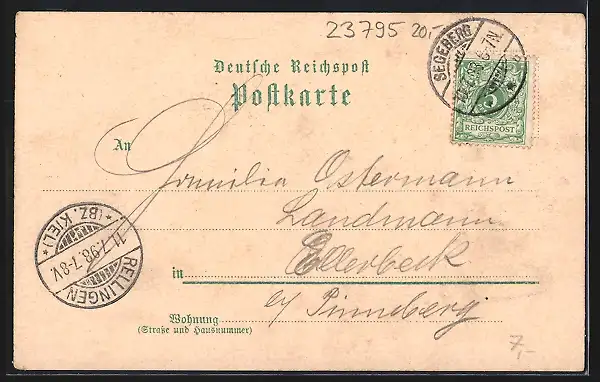 23795 20,-
SEGEBERG
6-7N.
Deutsche Reichspost
Postkarte
5
REICHSPOST
An
Familia Ostermann
Landmann
Ellerbeck
in
b/ Pinneberg
RELLINGEN
*(BZ. KIEL)*
11.7.98.7-8V.
Wohnung
(Straße und Hausnummer)
7,-